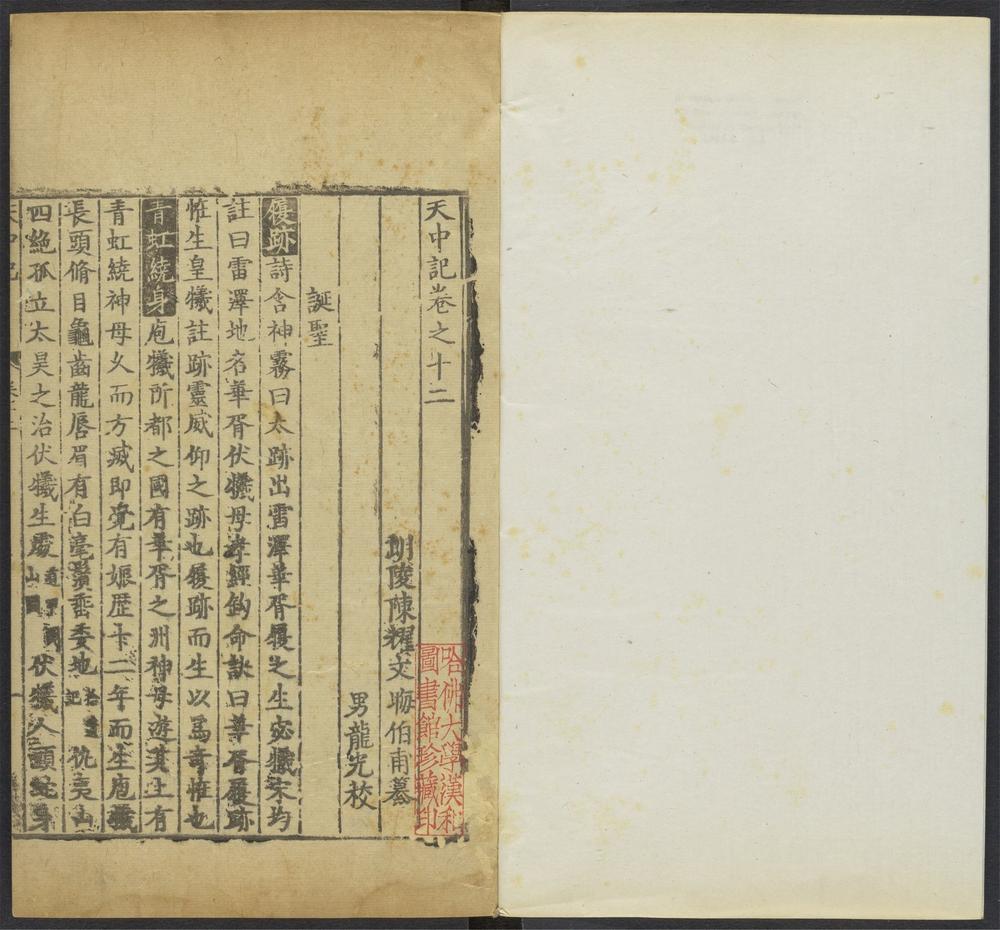 天中記卷之十二
朗陵陳耀文晦伯甫纂
男龍光校
誕聖
履跡詩含神霧曰太跡出雷澤華胥履之生宓犧宋均
註曰雷澤地名華胥伏犧母孝經鈎命訣曰華胥履跡
惟生皇犧註跡靈威仰之跡也履跡而生以爲竒惟也
青虹繞身庖犧所都之國有華胥之洲神母遊其上有
青虹繞神母久而方滅即覺有娠歷十二年而生庖犧
長頭脩目龜齒龍唇眉有白毫鬚垂委地拾遺記 仇夷山
四絶孤立太昊之治伏犧生處 伏犧人頭蛇身
哈佛大學漢和
圖書館珍藏印